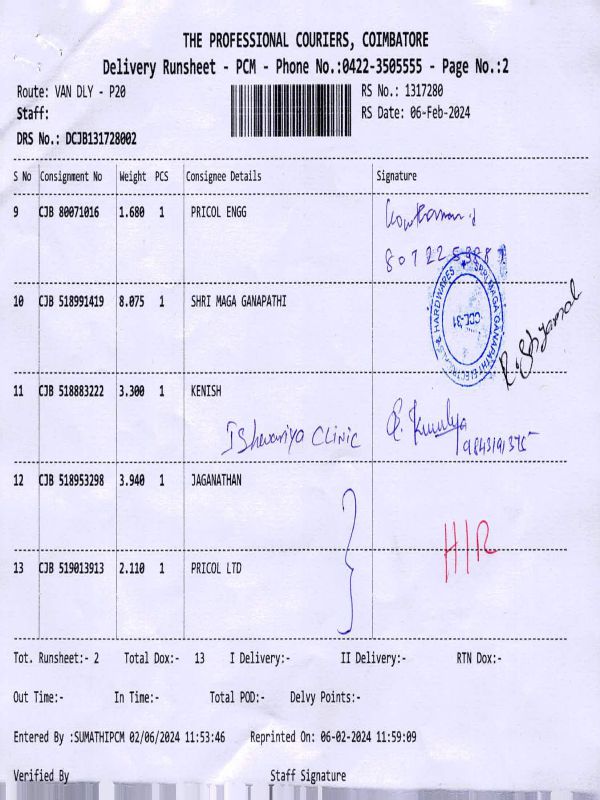 THE PROFESSIONAL COURIERS, COIMBATORE
Delivery Runsheet - PCM - Phone No.:0422-3505555 - Page No.:2
Route: VAN DLY - P20 RS No.: 1317280
Staff: RS Date: 06-Feb-2024
DRS No.: DCJB131728002
S No Consignment No Weight PCS Consignee Details Signature
9 CJB 80071016 1.680 1 PRICOL ENGG
10 CJB 518991419 8.075 1 SHRI MAGA GANAPATHI
SRRI MAGA GANAPATHI ELECTRICALS & HARDWARES
CBE-31
11 CJB 518883222 3.300 1 KENISH
Ishwariya CLINIC
9843191375
12 CJB 518953298 3.940 1 JAGANATHAN
HIR
13 CJB 519013913 2.110 1 PRICOL LTD
Tot. Runsheet:- 2 Total Dox:- 13 I Delivery:- II Delivery:- RTN Dox:-
Out Time:- In Time:- Total POD:- Delvy Points:-
Entered By :SUMATHIPCM 02/06/2024 11:53:46 Reprinted On: 06-02-2024 11:59:09
Verified By Staff Signature